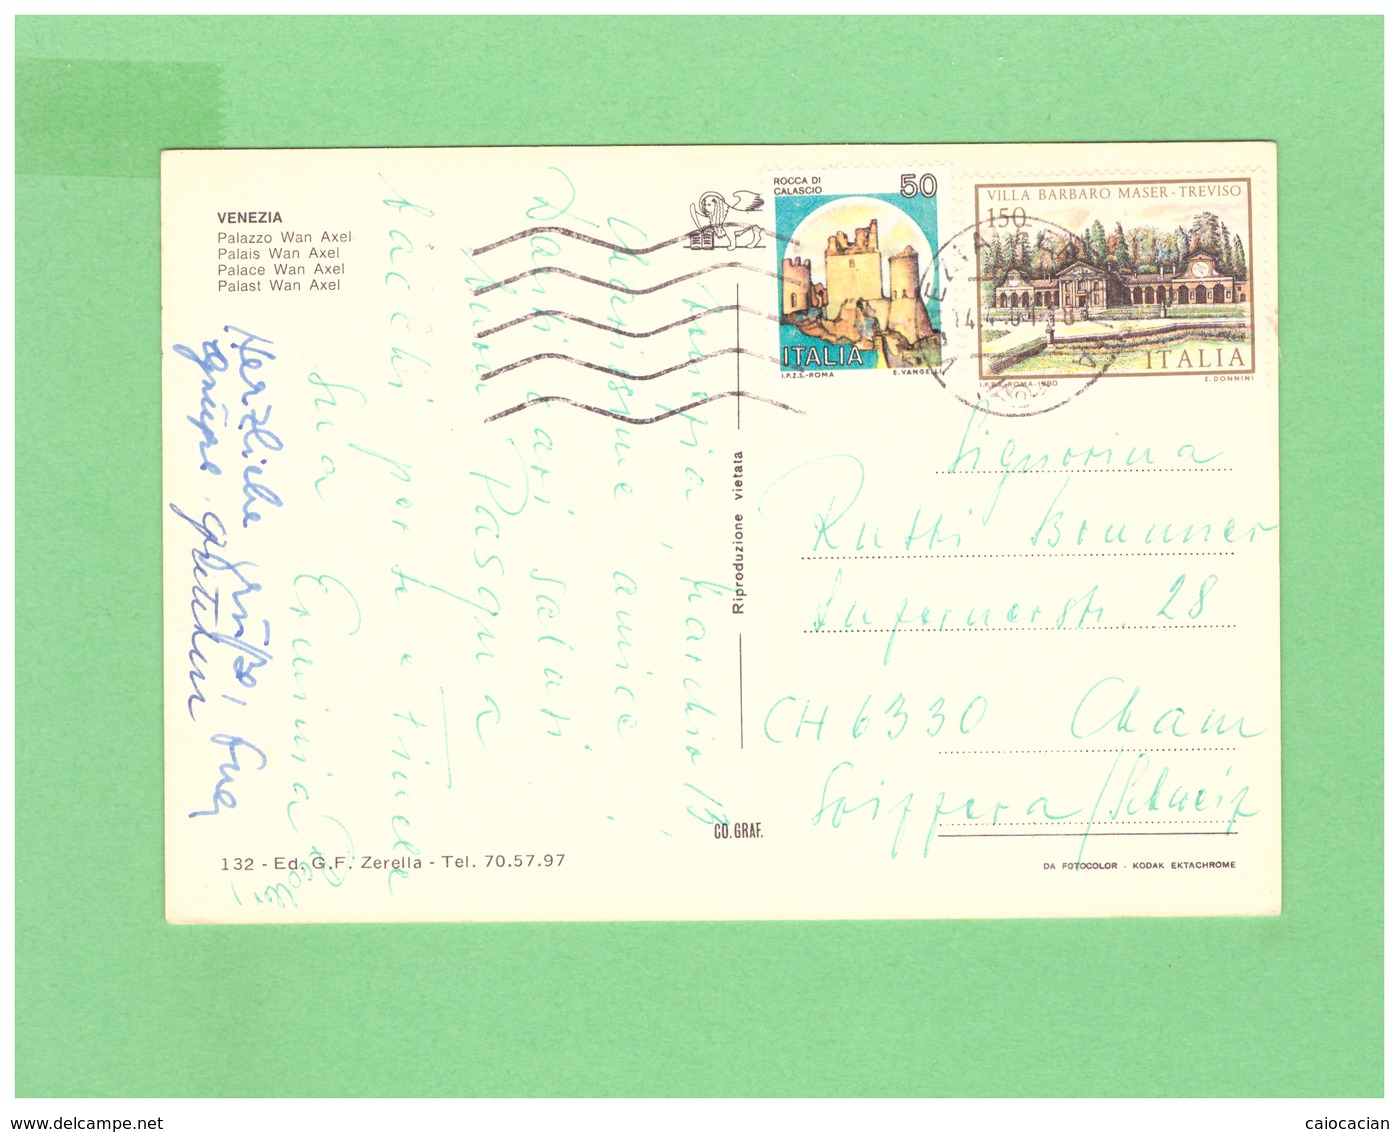 VENEZIA
Palazzo Wan Axel
Palais Wan Axel
Palace Wan Axel
Palast Wan Axel
ROCCA DI
CALASCIO
50
ITALIA
I.P.Z.S.-ROMA E. VANGELLI
VILLA BARBARO MASER - TREVISO
150
ITALIA
I.P.Z.S.-ROMA-1980 E. DONNINI
Venezia, marzo 13
Carissime amice
Tanti cari saluti
Buona Pasqua
bacchi per te e
Sua Erminia
Herzliche Grüsse,
Signorina
Rutti Brunner
Luzernerstr. 28
CH 6330 Cham
Svizzera/Schweiz
Riproduzione vietata
CO. GRAF.
132 - Ed. G.F. Zerella - Tel. 70.57.97
DA FOTOCOLOR - KODAK EKTACHROME
www.delcampe.net
caiocacian